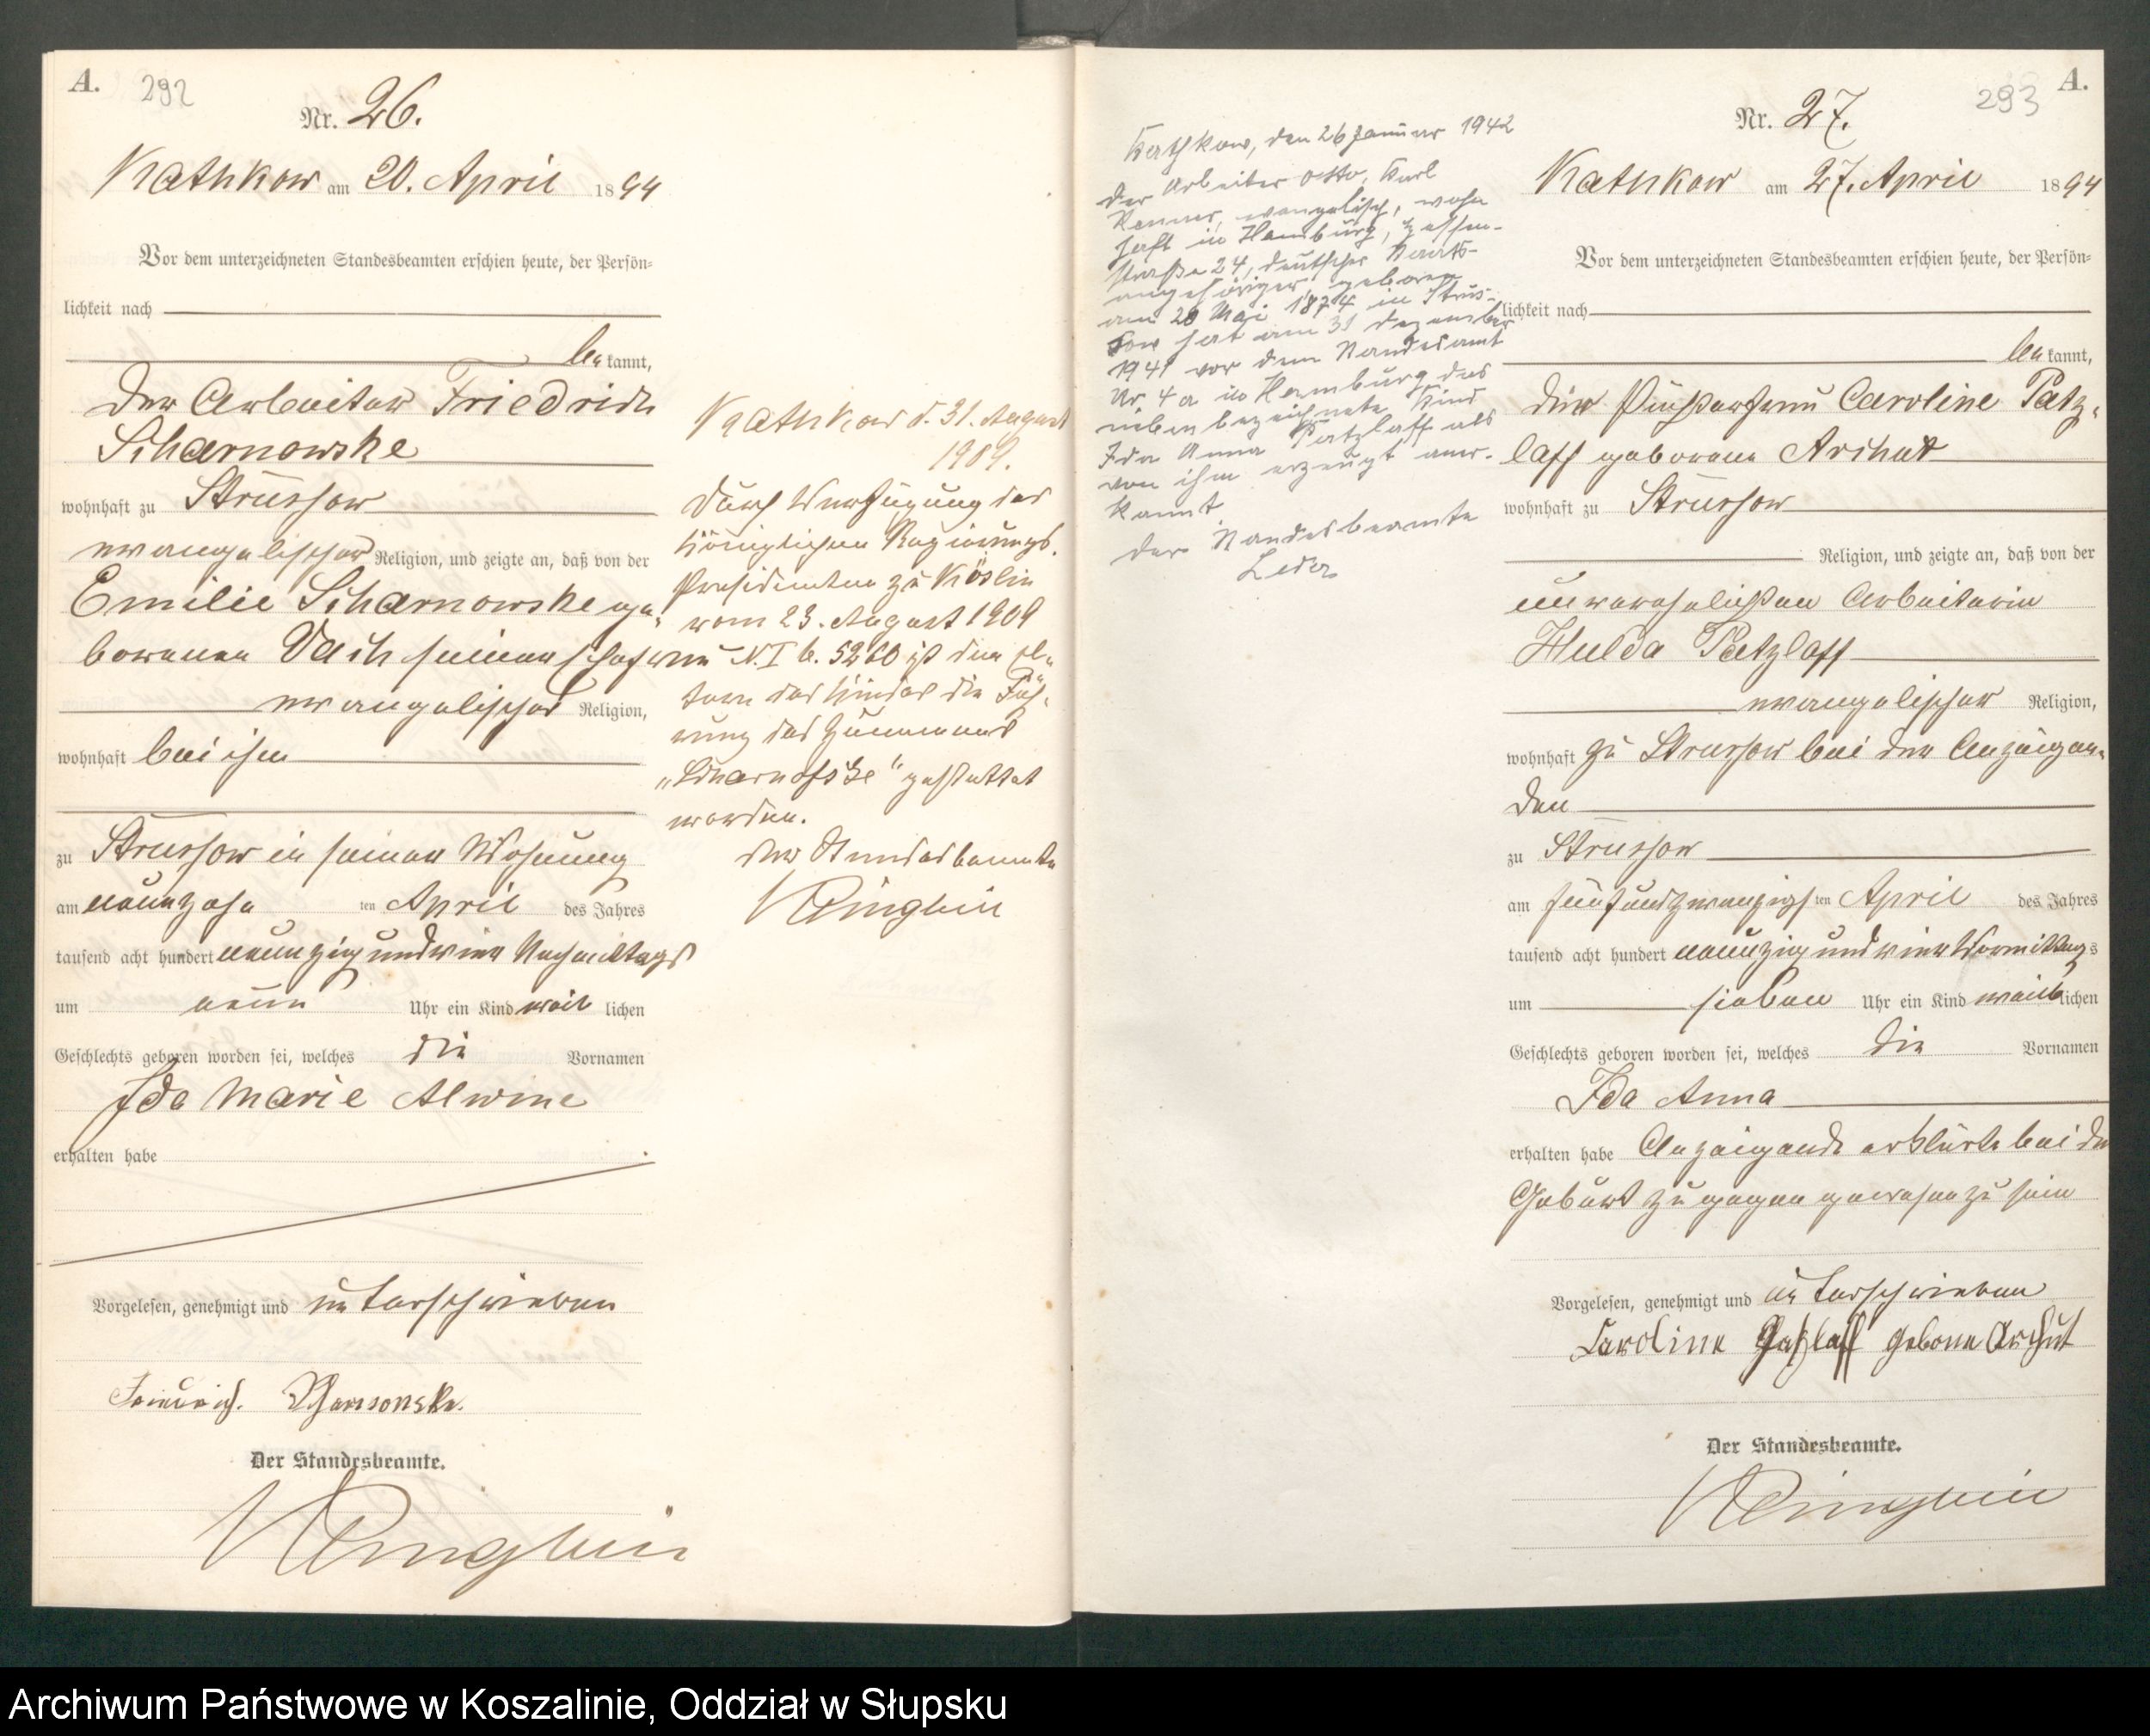 A.
292
Nr. 26.
Kathkow am 20. April 1894
Vor dem unterzeichneten Standesbeamten erschien heute, der Persön=
lichkeit nach
be kannt,
der Arbeiter Friedrich
Scharnowske
wohnhaft zu Strussow
evangelischer Religion, und zeigte an, daß von der
Emilie Scharnowske ge-
borenen Vach seiner Ehefrau
evangelischer Religion,
wohnhaft bei ihm
zu Strussow in seiner Wohnung
am neunzehn ten April des Jahres
tausend acht hundert neunzig und vier Nachmittags
um neun Uhr ein Kind weib lichen
Geschlechts geboren worden sei, welches die Vornamen
Ida Marie Alwine
erhalten habe
Vorgelesen, genehmigt und unterschrieben
Friedrich. Scharnowske.
Der Standesbeamte.
Kathkow d. 31. August
1909.
Durch Verfügung des
Königlichen Regierungs-
Präsidenten zu Köslin
vom 23. August 1909
N. I b. 5260 ist den El-
tern des Kindes die Füh-
rung des Zunamens
„Scharnofske“ gestattet
worden.
Der Standesbeamte
Kathkow, den 26 Januar 1942
Der Arbeiter Otto, Karl
evangelisch, wohn
haft in Hamburg,
straße 24, deutscher Staats-
angehöriger, geboren
am 20 Mai 1874 in Strus-
sow hat am 31 Dezember
1941 vor dem Standesamt
Nr. 4a in Hamburg das
nebenbezeichnete Kind
Ida Anna Patzlaff als
von ihm erzeugt aner-
kannt
Der Standesbeamte
A.
293
Nr. 27.
Kathkow am 27. April 1894
Vor dem unterzeichneten Standesbeamten erschien heute, der Persön=
lichkeit nach
be kannt,
die Caroline Patz-
laff geborene Archut
wohnhaft zu Strussow
Religion, und zeigte an, daß von der
unverehelichten Arbeiterin
Hulda Patzlaff
evangelischer Religion,
wohnhaft zu Strussow bei der Anzeigen-
den
zu Strussow
am fünfundzwanzigs ten April des Jahres
tausend acht hundert neunzig und vier Vormittags
um sieben Uhr ein Kind weib lichen
Geschlechts geboren worden sei, welches die Vornamen
Ida Anna
erhalten habe Anzeigende erklärte bei der
Geburt zugegen gewesen zu sein
Vorgelesen, genehmigt und unterschrieben
Caroline Patzlaff geborne Archut
Der Standesbeamte.
Archiwum Państwowe w Koszalinie, Oddział w Słupsku